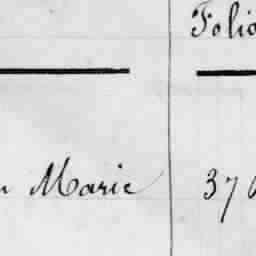 Folio
Marie 37